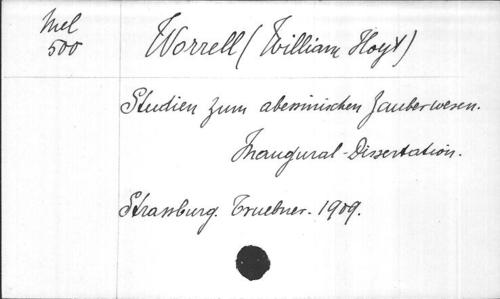 Mel
500
Worrell (William Hoyt)
Studien zum abessinischen Zauberwesen.
Inaugural-Dissertation.
Strassburg. Truebner. 1909.